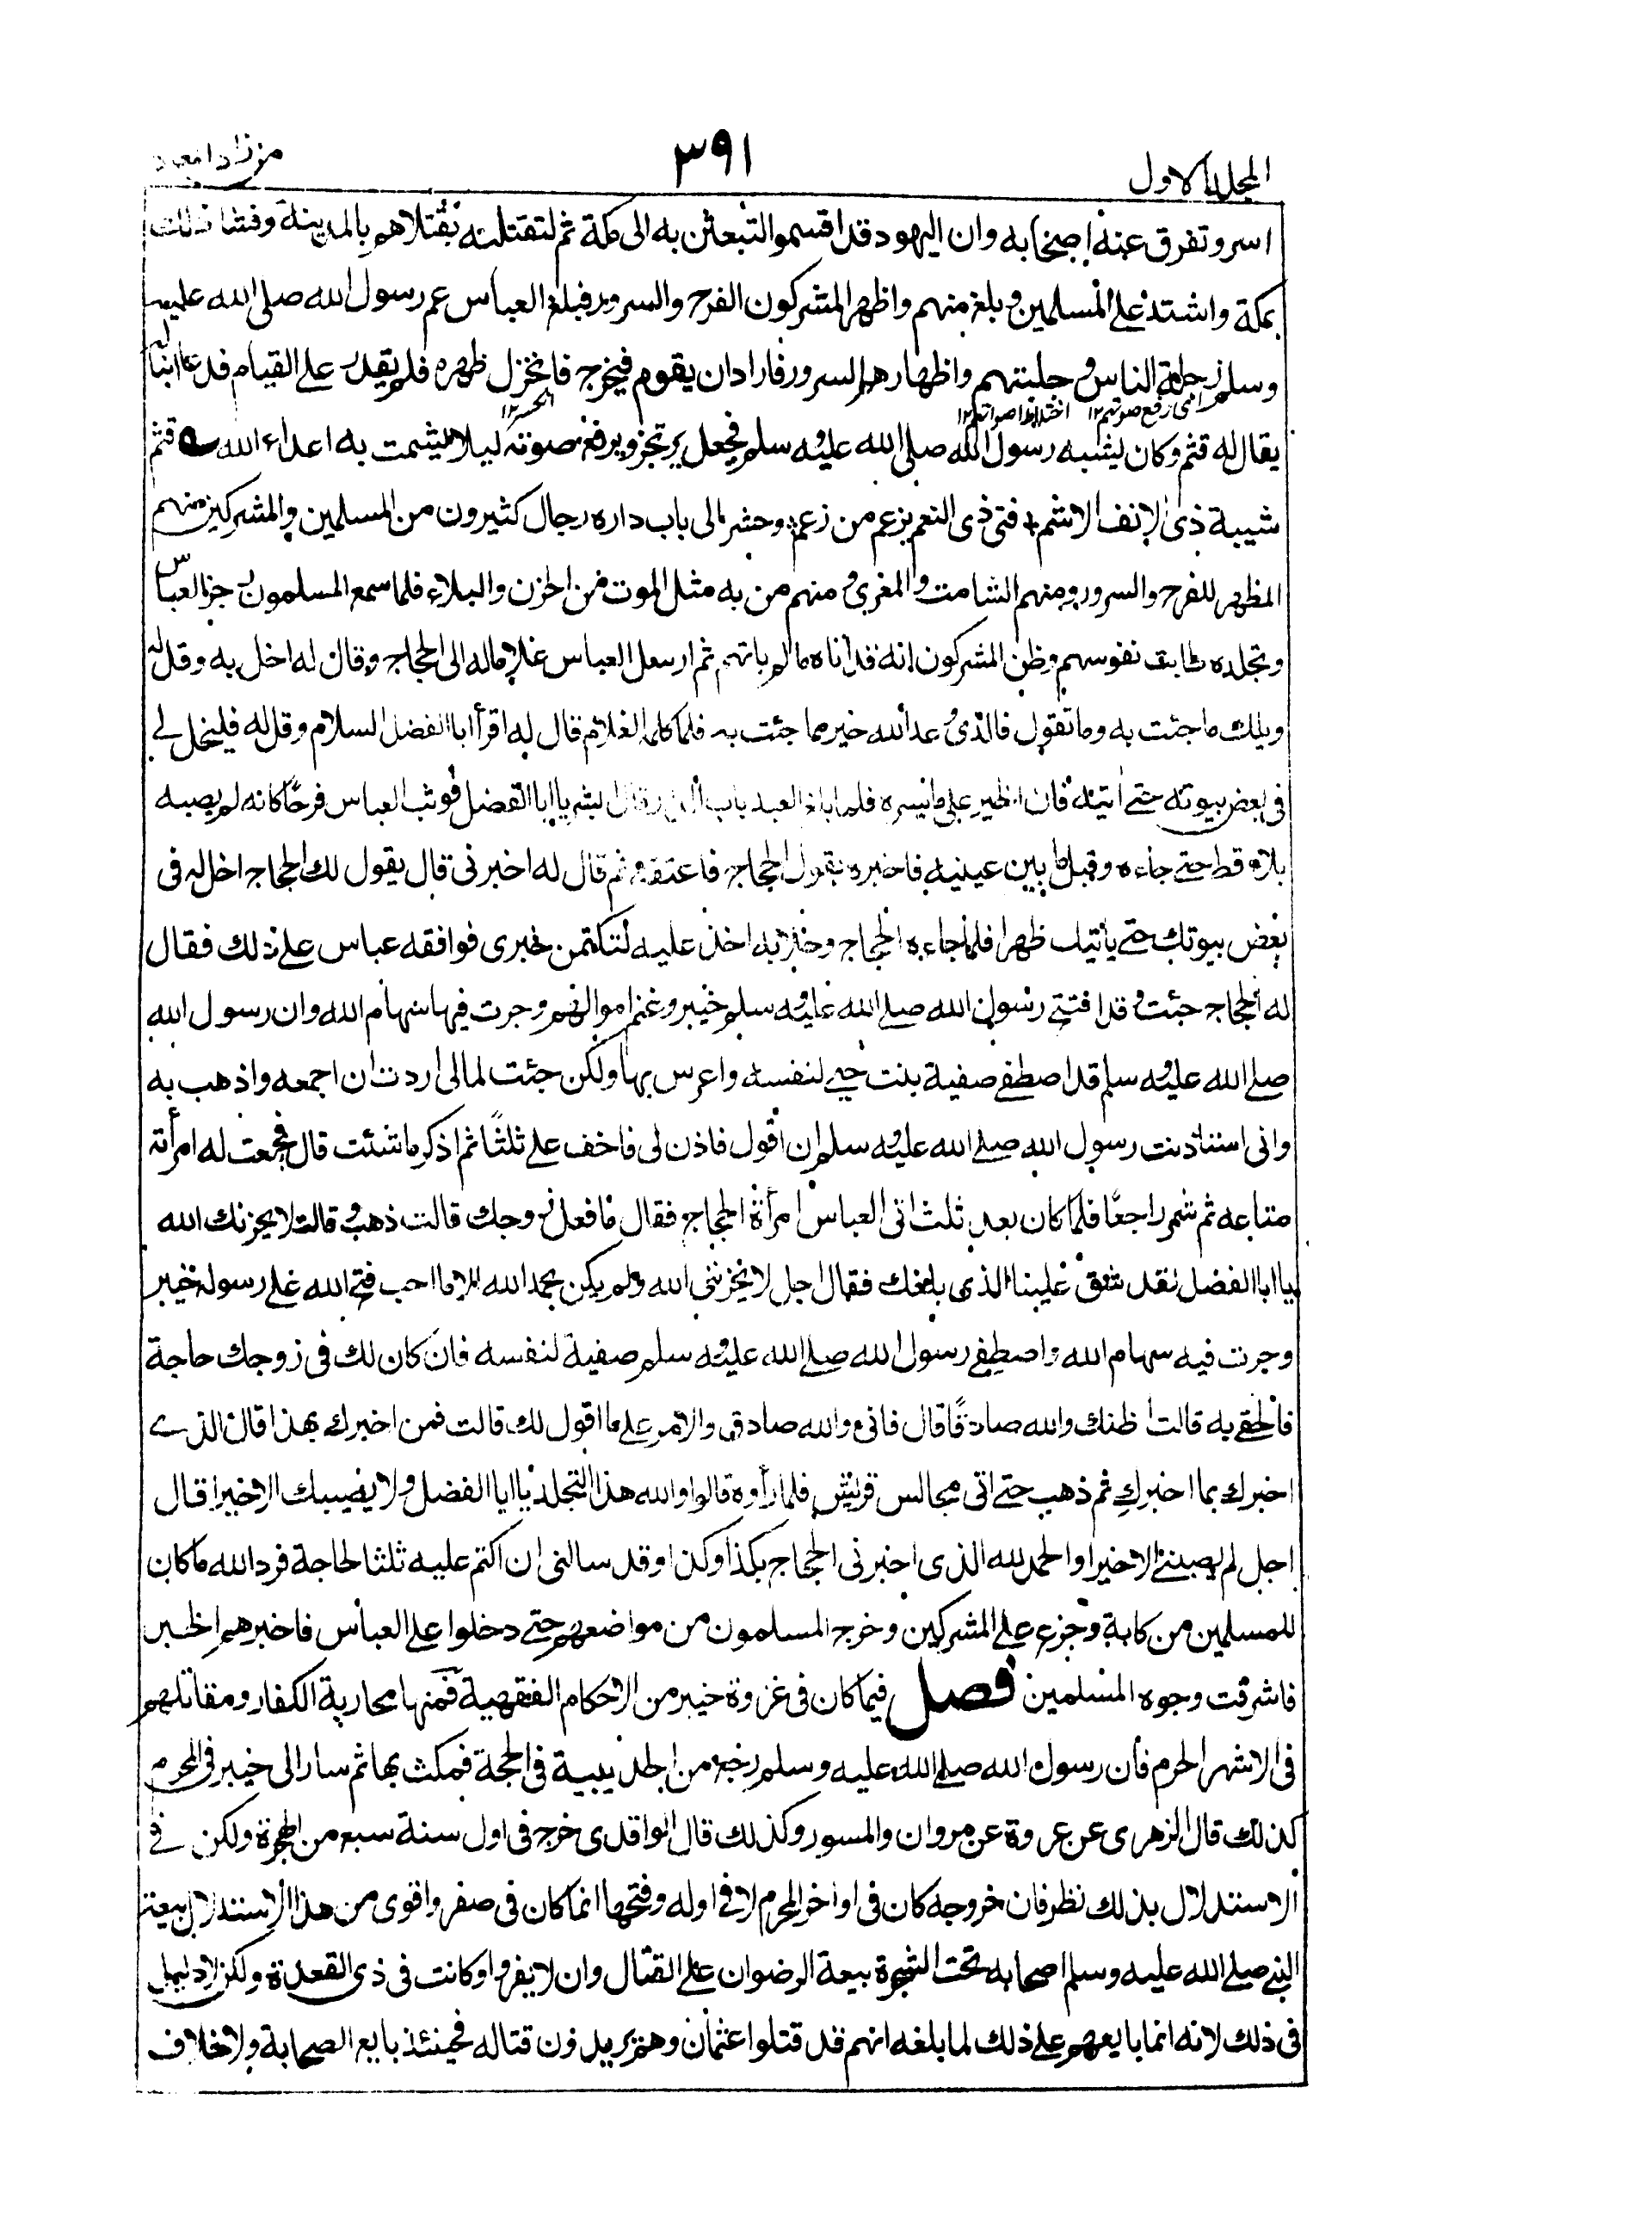 المجلد الاول
٣٩١
من زاد المعاد
اسر و تفرق عنه اصحابه وان اليهود قد اقسموا لتبعثن به الى مكة ثم لتقتلنه بقتلاهم بالمدينة وفشا ذلك
بمكة واشتد على المسلمين و بلغ منهم واظهر المشركون الفرح والسرور فبلغ العباس عم رسول الله صلى الله عليه
وسلم زجلة الناس و جلبتهم واظهارهم السرور فاراد ان يقوم فيخرج فانخزل ظهره فلم يقدر على القيام فدعا ابنا له
اى رفع صوتهم ١٢ اختلاط اصواتهم ١٢
يقال له قثم وكان يشبه رسول الله صلى الله عليه و سلم فجعل يرتجز ويرفع صوته ليلا يشمت به اعداء الله قثم
شيبة ذى الانف الاشم فتى ذى النعم بزعم من زعم وحشر الى باب داره رجال كثيرون من المسلمين والمشركين منهم
المظهر للفرح والسرور ومنهم الشامت والمغرى و منهم من به مثل الموت من الحزن والبلاء فلما سمع المسلمون رجز العباس
وتجلده طابت نفوسهم وظن المشركون انه قد اتاه ما لم ياتهم ثم ارسل العباس غلاما له الى الحجاج وقال له اخل به وقل له
ويلك ما جئت به وما تقول فالذى وعد الله خير مما جئت به فلما كلمه الغلام قال له اقرأ ابا الفضل السلام وقل له فليخل لى
فى بعض بيوته حتى اتينه فان الخبر على ما يسره فلما بلغ العبد باب الدار قال ابشر يا ابا الفضل فوثب العباس فرحًا كانه لم يصبه
بلاء قط حتى جاءه وقبل ما بين عينيه فاخبره بقول الحجاج فاعتقه ثم قال له اخبرنى قال يقول لك الحجاج اخل له فى
بعض بيوتك حتى ياتيك ظهرا فلما جاءه الحجاج وخلا به اخذ عليه لتكتمن خبرى فوافقه عباس على ذلك فقال
له الحجاج جئت و قد افتتح رسول الله صلى الله عليه و سلم خيبر وغنم اموالهم وجرت فيها سهام الله وان رسول الله
صلى الله عليه و سلم قد اصطفى صفية بنت حيى لنفسه واعرس بها ولكن جئت لمالى اردت ان اجمعه واذهب به
وانى استاذنت رسول الله صلى الله عليه و سلم ان اقول فاذن لى فاخف على ثلثًا ثم اذكر ما شئت قال فجمعت له امرأته
متاعه ثم شمر راجعًا فلما كان بعد ثلث اتى العباس امرأة الحجاج فقال ما فعل زوجك قالت ذهب وقالت لا يحزنك الله
يا ابا الفضل لقد شق علينا الذى بلغك فقال اجل لا يحزننى الله ولم يكن بحمد الله الا ما احب فتح الله على رسوله خيبر
وجرت فيه سهام الله واصطفى رسول الله صلى الله عليه و سلم صفية لنفسه فان كان لك فى زوجك حاجة
فالحقى به قالت اظنك والله صادقًا قال فانى والله صادق والامر على ما اقول لك قالت فمن اخبرك بهذا قال الذى
اخبرك بما اخبرك ثم ذهب حتى اتى مجالس قريش فلما رأوه قالوا والله هذا التجلد يا ابا الفضل ولا يصيبك الا خيرا قال
اجل لم يصبنى الا خيرا والحمد لله الذى اخبرنى الحجاج بكذا وكذا وقد سالنى ان اكتم عليه ثلثا لحاجة فرد الله ما كان
للمسلمين من كابة وجزع على المشركين وخرج المسلمون من مواضعهم حتى دخلوا على العباس فاخبرهم الخبر
فاشرقت وجوه المسلمين فصل فيما كان فى غزوة خيبر من الاحكام الفقهية فمنها محاربة الكفار ومقاتلهم
فى الاشهر الحرم فان رسول الله صلى الله عليه وسلم رجع من الحديبية فى الحجة فمكث بها ثم سار الى خيبر فى المحرم
كذلك قال الزهرى عن عروة عن مروان والمسور وكذلك قال الواقدى خرج فى اول سنة سبع من الهجرة ولكن فى
الاستدلال بذلك نظر فان خروجه كان فى اواخر المحرم لا فى اوله وفتحها انما كان فى صفر واقوى من هذا الاستدلال بيعة
النبى صلى الله عليه وسلم اصحابه تحت الشجرة بيعة الرضوان على القتال وان لا يفروا وكانت فى ذى القعدة ولكن لا دليل
فى ذلك لانه انما بايعهم على ذلك لما بلغه انهم قد قتلوا عثمان وهم يريدون قتاله فحينئذ بايع الصحابة ولا خلاف